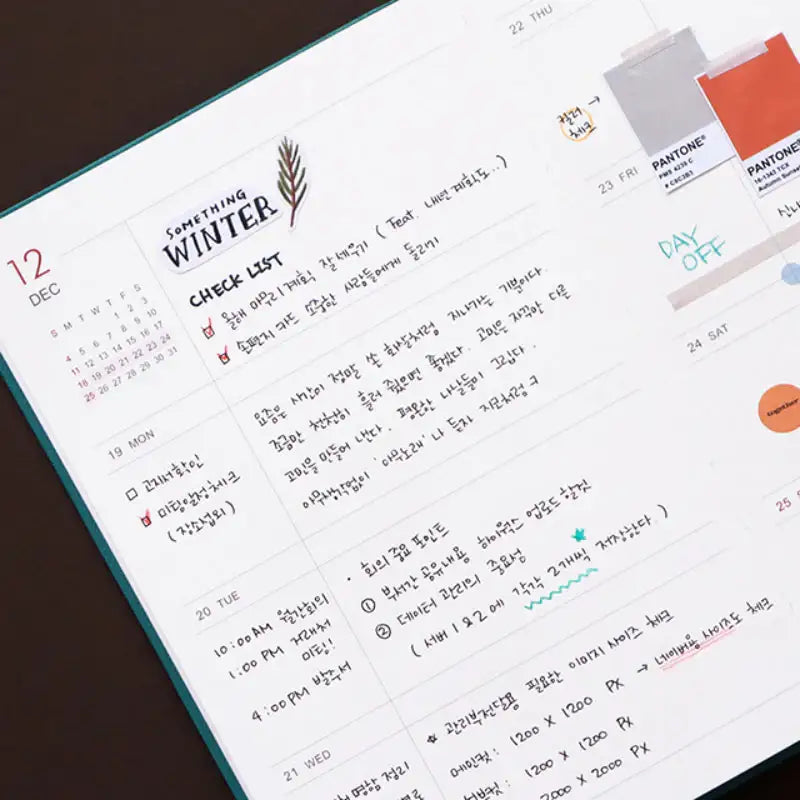 12
DEC
S M T W T F S
1 2 3
4 5 6 7 8 9 10
11 12 13 14 15 16 17
18 19 20 21 22 23 24
25 26 27 28 29 30 31
SOMETHING
WINTER
CHECK LIST
올해 마무리 계획 잘 세우기 (Feat. 내년 계획도..)
손편지 카드 소중한 사람들에게 돌리기
19 MON
고지서확인
미팅일정체크
(장소섭외)
요즘은 시간이 정말 쏜 화살처럼 지나가는 기분이다.
조금만 천천히 흘러 줬으면 좋겠다. 고민은 자꾸만 다른
고민을 만들어 낸다. 평온한 나날들이 그립다.
아무생각없이 '아무노래'나 듣자 지코처럼ㅋ
20 TUE
10:00AM 월간회의
1:00 PM 거래처
미팅!
4:00PM 발주서
· 회의 주요 포인트
① 부서간 공유내용 하이웍스 업로드 할것
② 데이터 관리의 중요성
(서버 1 & 2 에 각각 2개씩 저장한다.)
21 WED
명함 정리
관리부전달용 필요한 이미지 사이즈 체크
메인컷: 1200 X 1200 PX → 네이버용 사이즈도 체크
1200 X 1200 PX
2000 X 2000 PX
22 THU
컬러
체크 →
PANTONE®
PMS 4239 C
# C5C3B1
PANTONE®
16-1343 TCX
Autumn Sunset
23 FRI
DAY
OFF
24 SAT
25